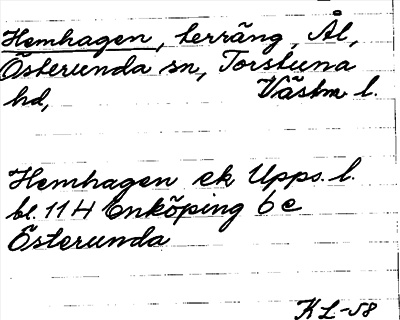 Hemhagen, terräng, Ål,
Österunda sn, Torstuna
hd, Västm l.
Hemhagen ek Upps. l.
bl. 114 Enköping 6 e
Österunda
KL-58